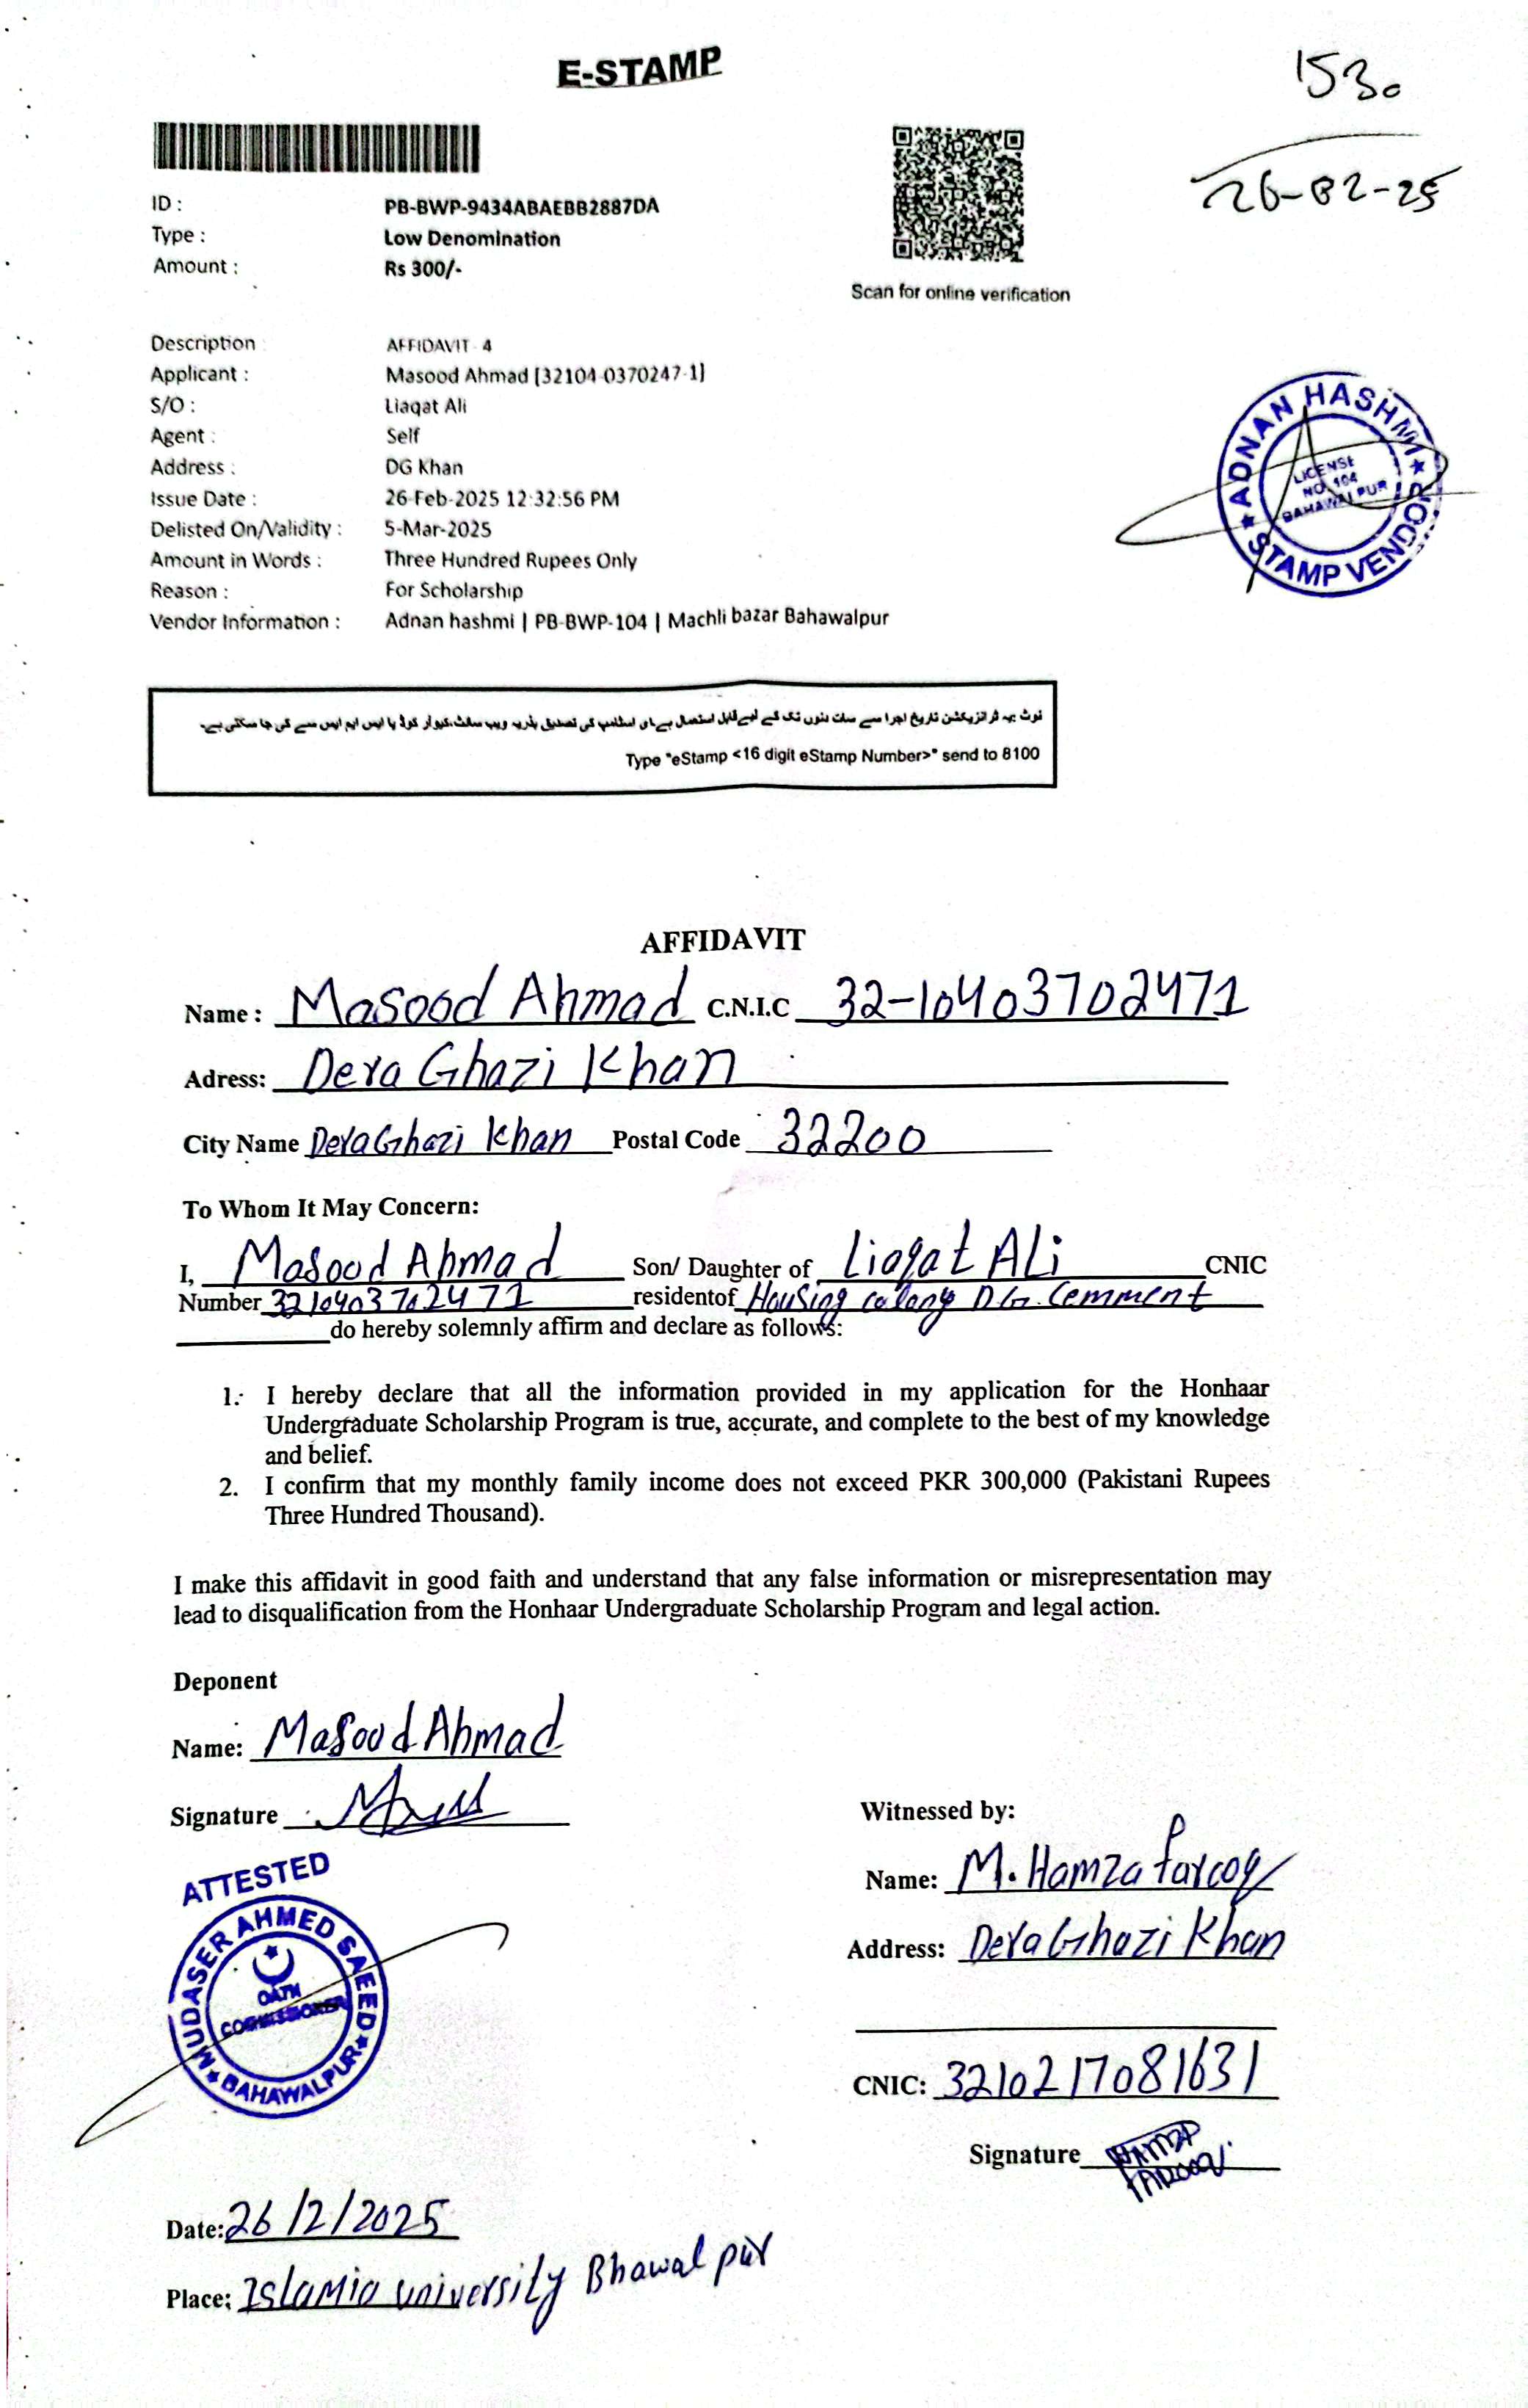 E-STAMP
1530
26-02-25
ID : PB-BWP-9434ABAEBB2887DA
Type : Low Denomination
Amount : Rs 300/-
Scan for online verification
Description AFFIDAVIT - 4
Applicant : Masood Ahmad [32104-0370247-1]
S/O : Liaqat Ali
Agent : Self
Address : DG Khan
Issue Date : 26-Feb-2025 12:32:56 PM
Delisted On/Validity : 5-Mar-2025
Amount in Words : Three Hundred Rupees Only
Reason : For Scholarship
Vendor Information : Adnan hashmi | PB-BWP-104 | Machli bazar Bahawalpur
ADNAN HASHMI
LICENSE
NO. 104
BAHAWALPUR
STAMP VENDOR
نوٹ: یہ ٹرانزیکشن تاریخ اجرا سے سات دنوں تک کے لیے قابل استعمال ہے۔ ای اسٹامپ کی تصدیق بذریعہ ویب سائٹ، کیو آر کوڈ یا ایس ایم ایس سے کی جا سکتی ہے۔
Type "eStamp <16 digit eStamp Number>" send to 8100
AFFIDAVIT
Name : Masood Ahmad C.N.I.C 32-10403702471
Adress: Dera Ghazi Khan
City Name Dera Ghazi Khan Postal Code 32200
To Whom It May Concern:
I, Masood Ahmad Son/ Daughter of Liaqat Ali CNIC
Number 3210403702471 residentof Housing colony D.G. Cemment
do hereby solemnly affirm and declare as follows:
1. I hereby declare that all the information provided in my application for the Honhaar
Undergraduate Scholarship Program is true, accurate, and complete to the best of my knowledge
and belief.
2. I confirm that my monthly family income does not exceed PKR 300,000 (Pakistani Rupees
Three Hundred Thousand).
I make this affidavit in good faith and understand that any false information or misrepresentation may
lead to disqualification from the Honhaar Undergraduate Scholarship Program and legal action.
Deponent
Name: Masood Ahmad
Signature
Witnessed by:
Name: M. Hamza farooq
Address: Dera Ghazi Khan
CNIC: 3210217081631
Signature HAMZA
FAROOQ
ATTESTED
MUDASER AHMED SAEED
OATH
COMMISSIONER
BAHAWALPUR
Date: 26/2/2025
Place: Islamia university Bhawal pur